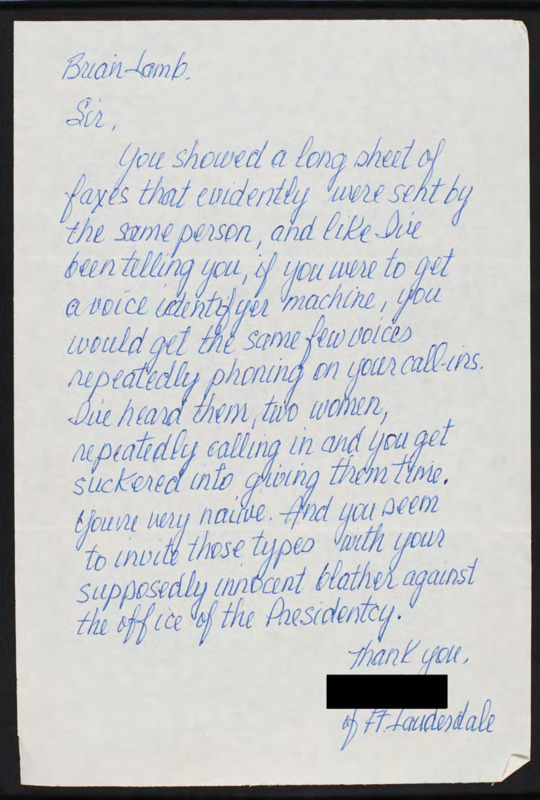 Brian Lamb.
Sir,
You showed a long sheet of
faxes that evidently were sent by
the same person, and like I've
been telling you, if you were to get
a voice identifyer machine, you
would get the same few voices
repeatedly phoning on your call-ins.
I've heard them, two women,
repeatedly calling in and you get
suckered into giving them time.
You're very naive. And you seem
to invite those types with your
supposedly innocent blather against
the office of the Presidentcy.
Thank you,
of Ft. Lauderdale